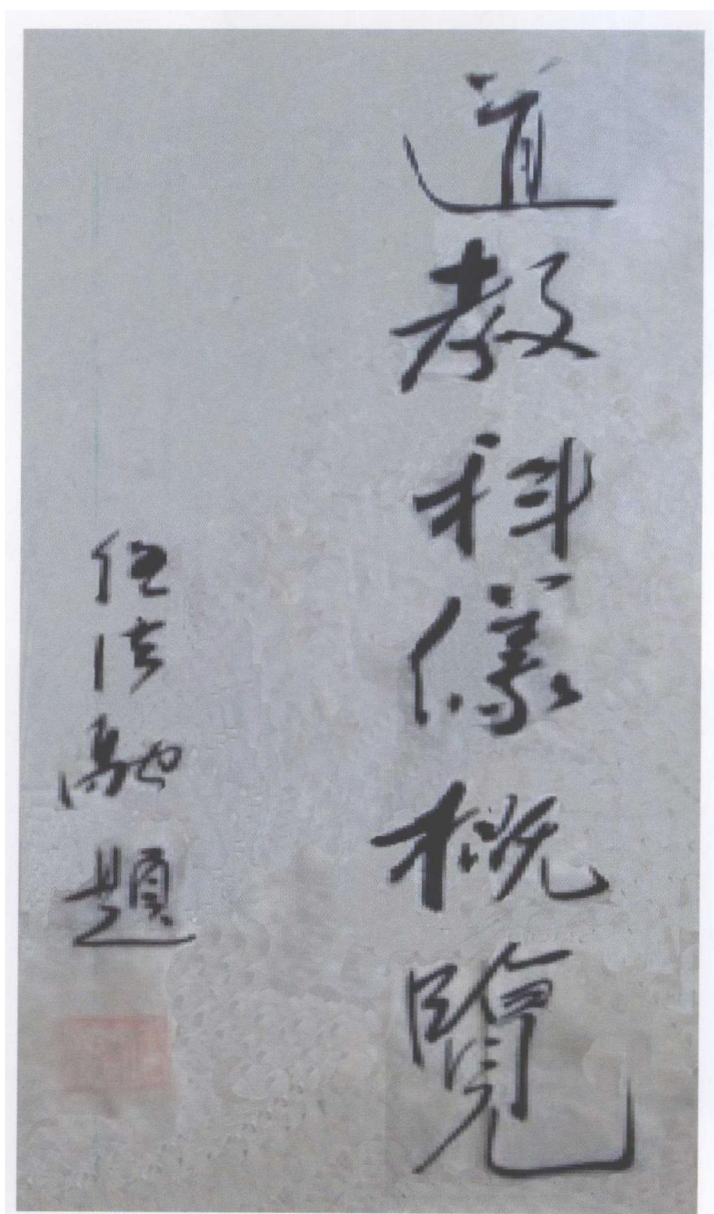 道教科儀概覽
任法融題